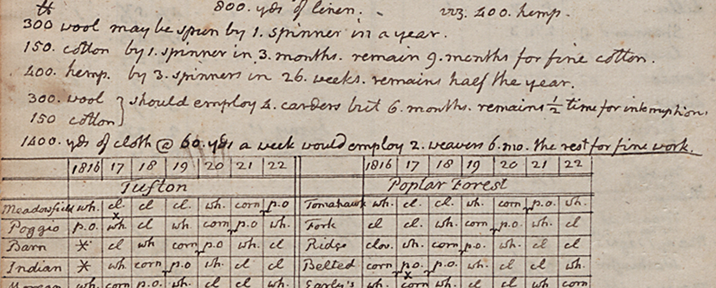 ℔ 800. yds of linen. 223. 400. hemp.
300 wool may be spun by 1. spinner in a year.
150. cotton by 1. spinner in 3. months. remain 9. months for fine cotton.
400. hemp. by 3. spinners in 26. weeks. remains half the year.
300. wool } should employ 4. carders but 6. months. remains ½ time for interruption.
150 cotton }
1400. yds of cloth @ 60. yds a week would employ 2. weavers 6. mo. the rest for fine work.
1816 17 18 19 20 21 22 1816 17 18 19 20 21 22
Tufton Poplar Forest
Meadowfield wh. cl cl. cl. wh. corn p.o Tomahawk wh. cl. cl. wh. corn p.o. wh.
Poggio p.o. wh. cl wh. corn p.o wh. Fork cl cl. wh. corn p.o. wh. cl
Barn * cl wh corn p.o wh cl Ridge clov. wh. corn p.o. wh. cl cl
Indian * wh. corn p.o wh. cl cl Belted corn p.o. p.o. wh. cl cl wh.
wh. corn p.o. wh. cl cl wh Early's wh. corn wh. cl cl wh corn